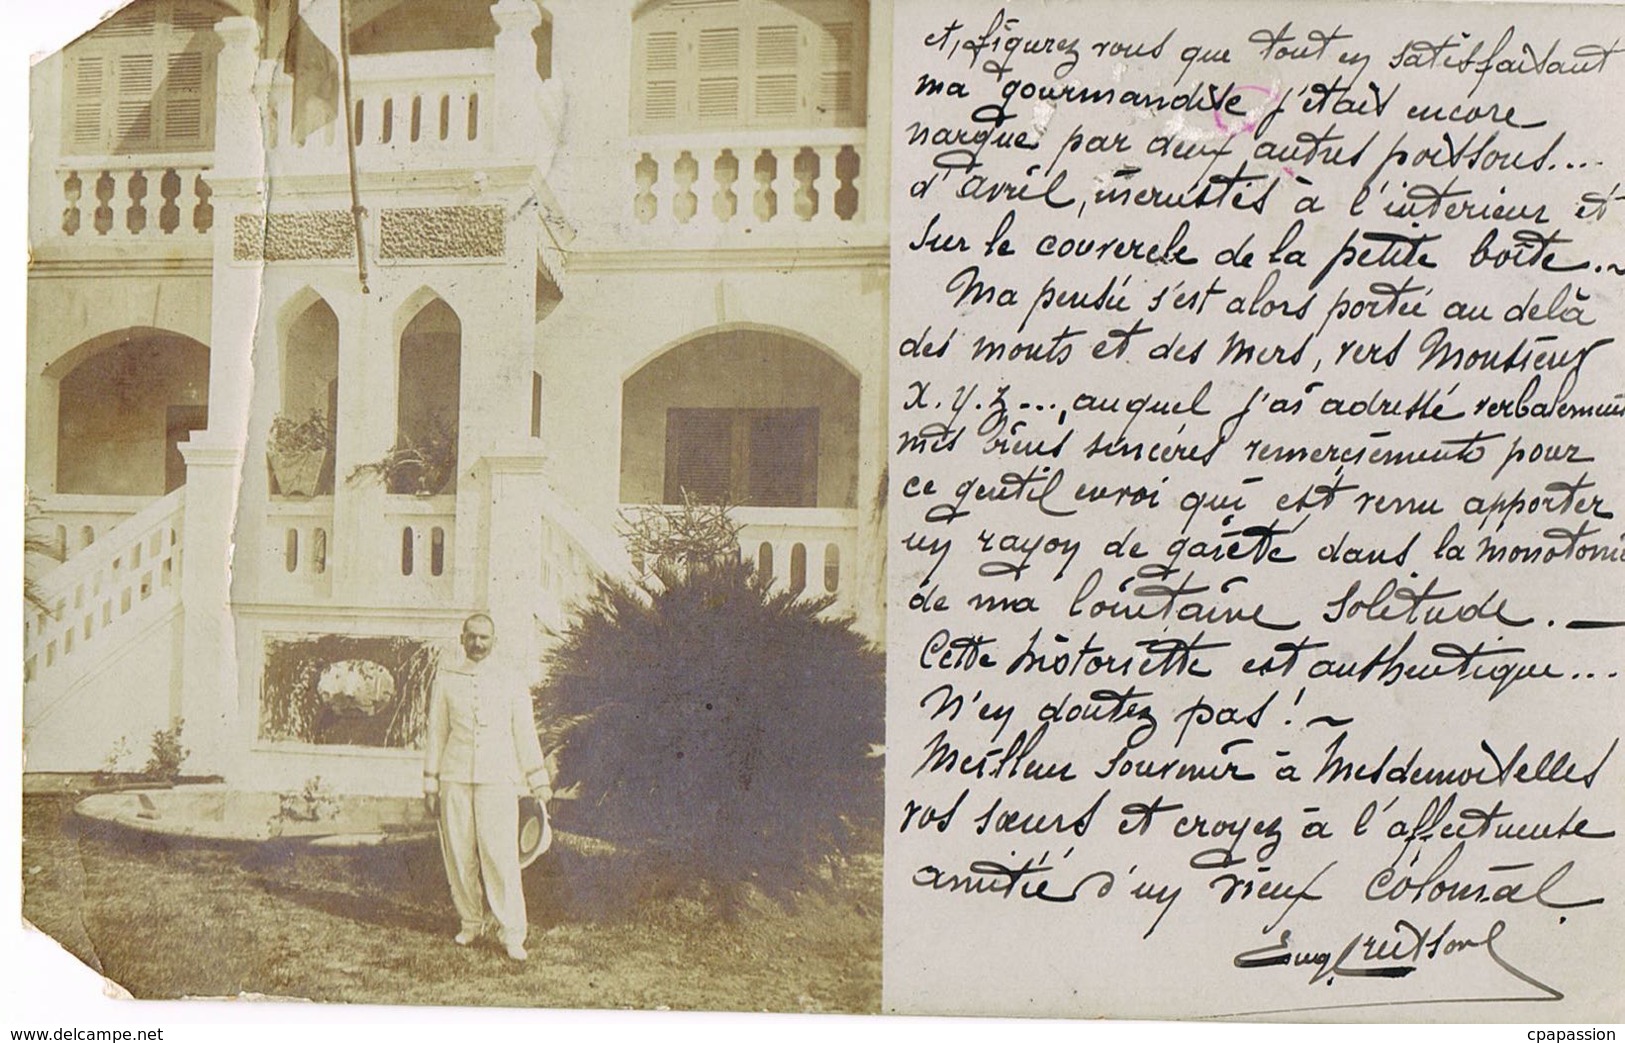 et, figurez vous que tout en satisfaisant
ma gourmandise j'étais encore
nargué par deux autres poissons...
d'avril, incrustés à l'interieur et
sur le couvercle de la petite boîte.~
Ma pensée s'est alors portée au delà
des monts et des mers, vers Monsieur
X.Y.Z...., auquel j'ai adressé verbalement
mes biens sincères remerciements pour
ce gentil envoi qui est venu apporter
un rayon de gaieté dans la monotonie
de ma lointaine solitude. —
Cette historiette est authentique...
N'en doutez pas! ~
Meilleur souvenir à Mesdemoiselles
vos sœurs et croyez à l'affectueuse
amitié d'un vieux Colonial.
Eug.
www.delcampe.net
cpapassion